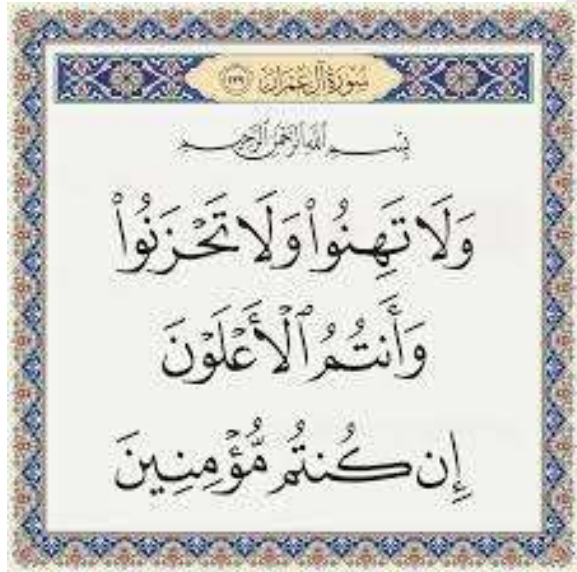 سُورَةُ آلِ عِمْرَان ١٣٩
بِسْمِ اللَّهِ الرَّحْمَٰنِ الرَّحِيمِ
وَلَا تَهِنُوا۟ وَلَا تَحْزَنُوا۟
وَأَنتُمُ ٱلْأَعْلَوْنَ
إِن كُنتُم مُّؤْمِنِينَ